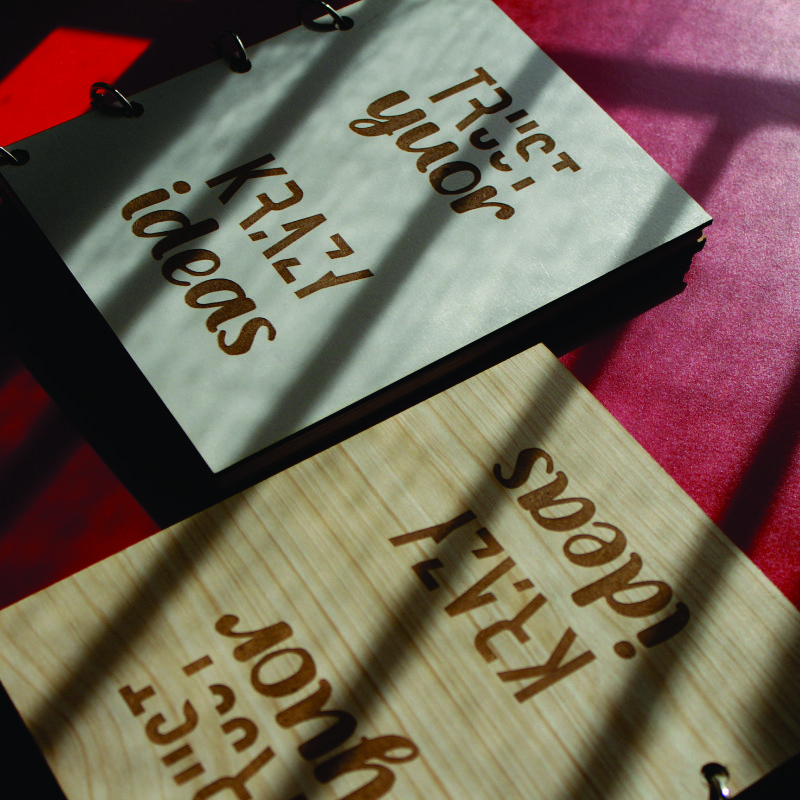 TRUST
yuor
KRAZY
ideas
RUST
yuor
KRAZY
ideas